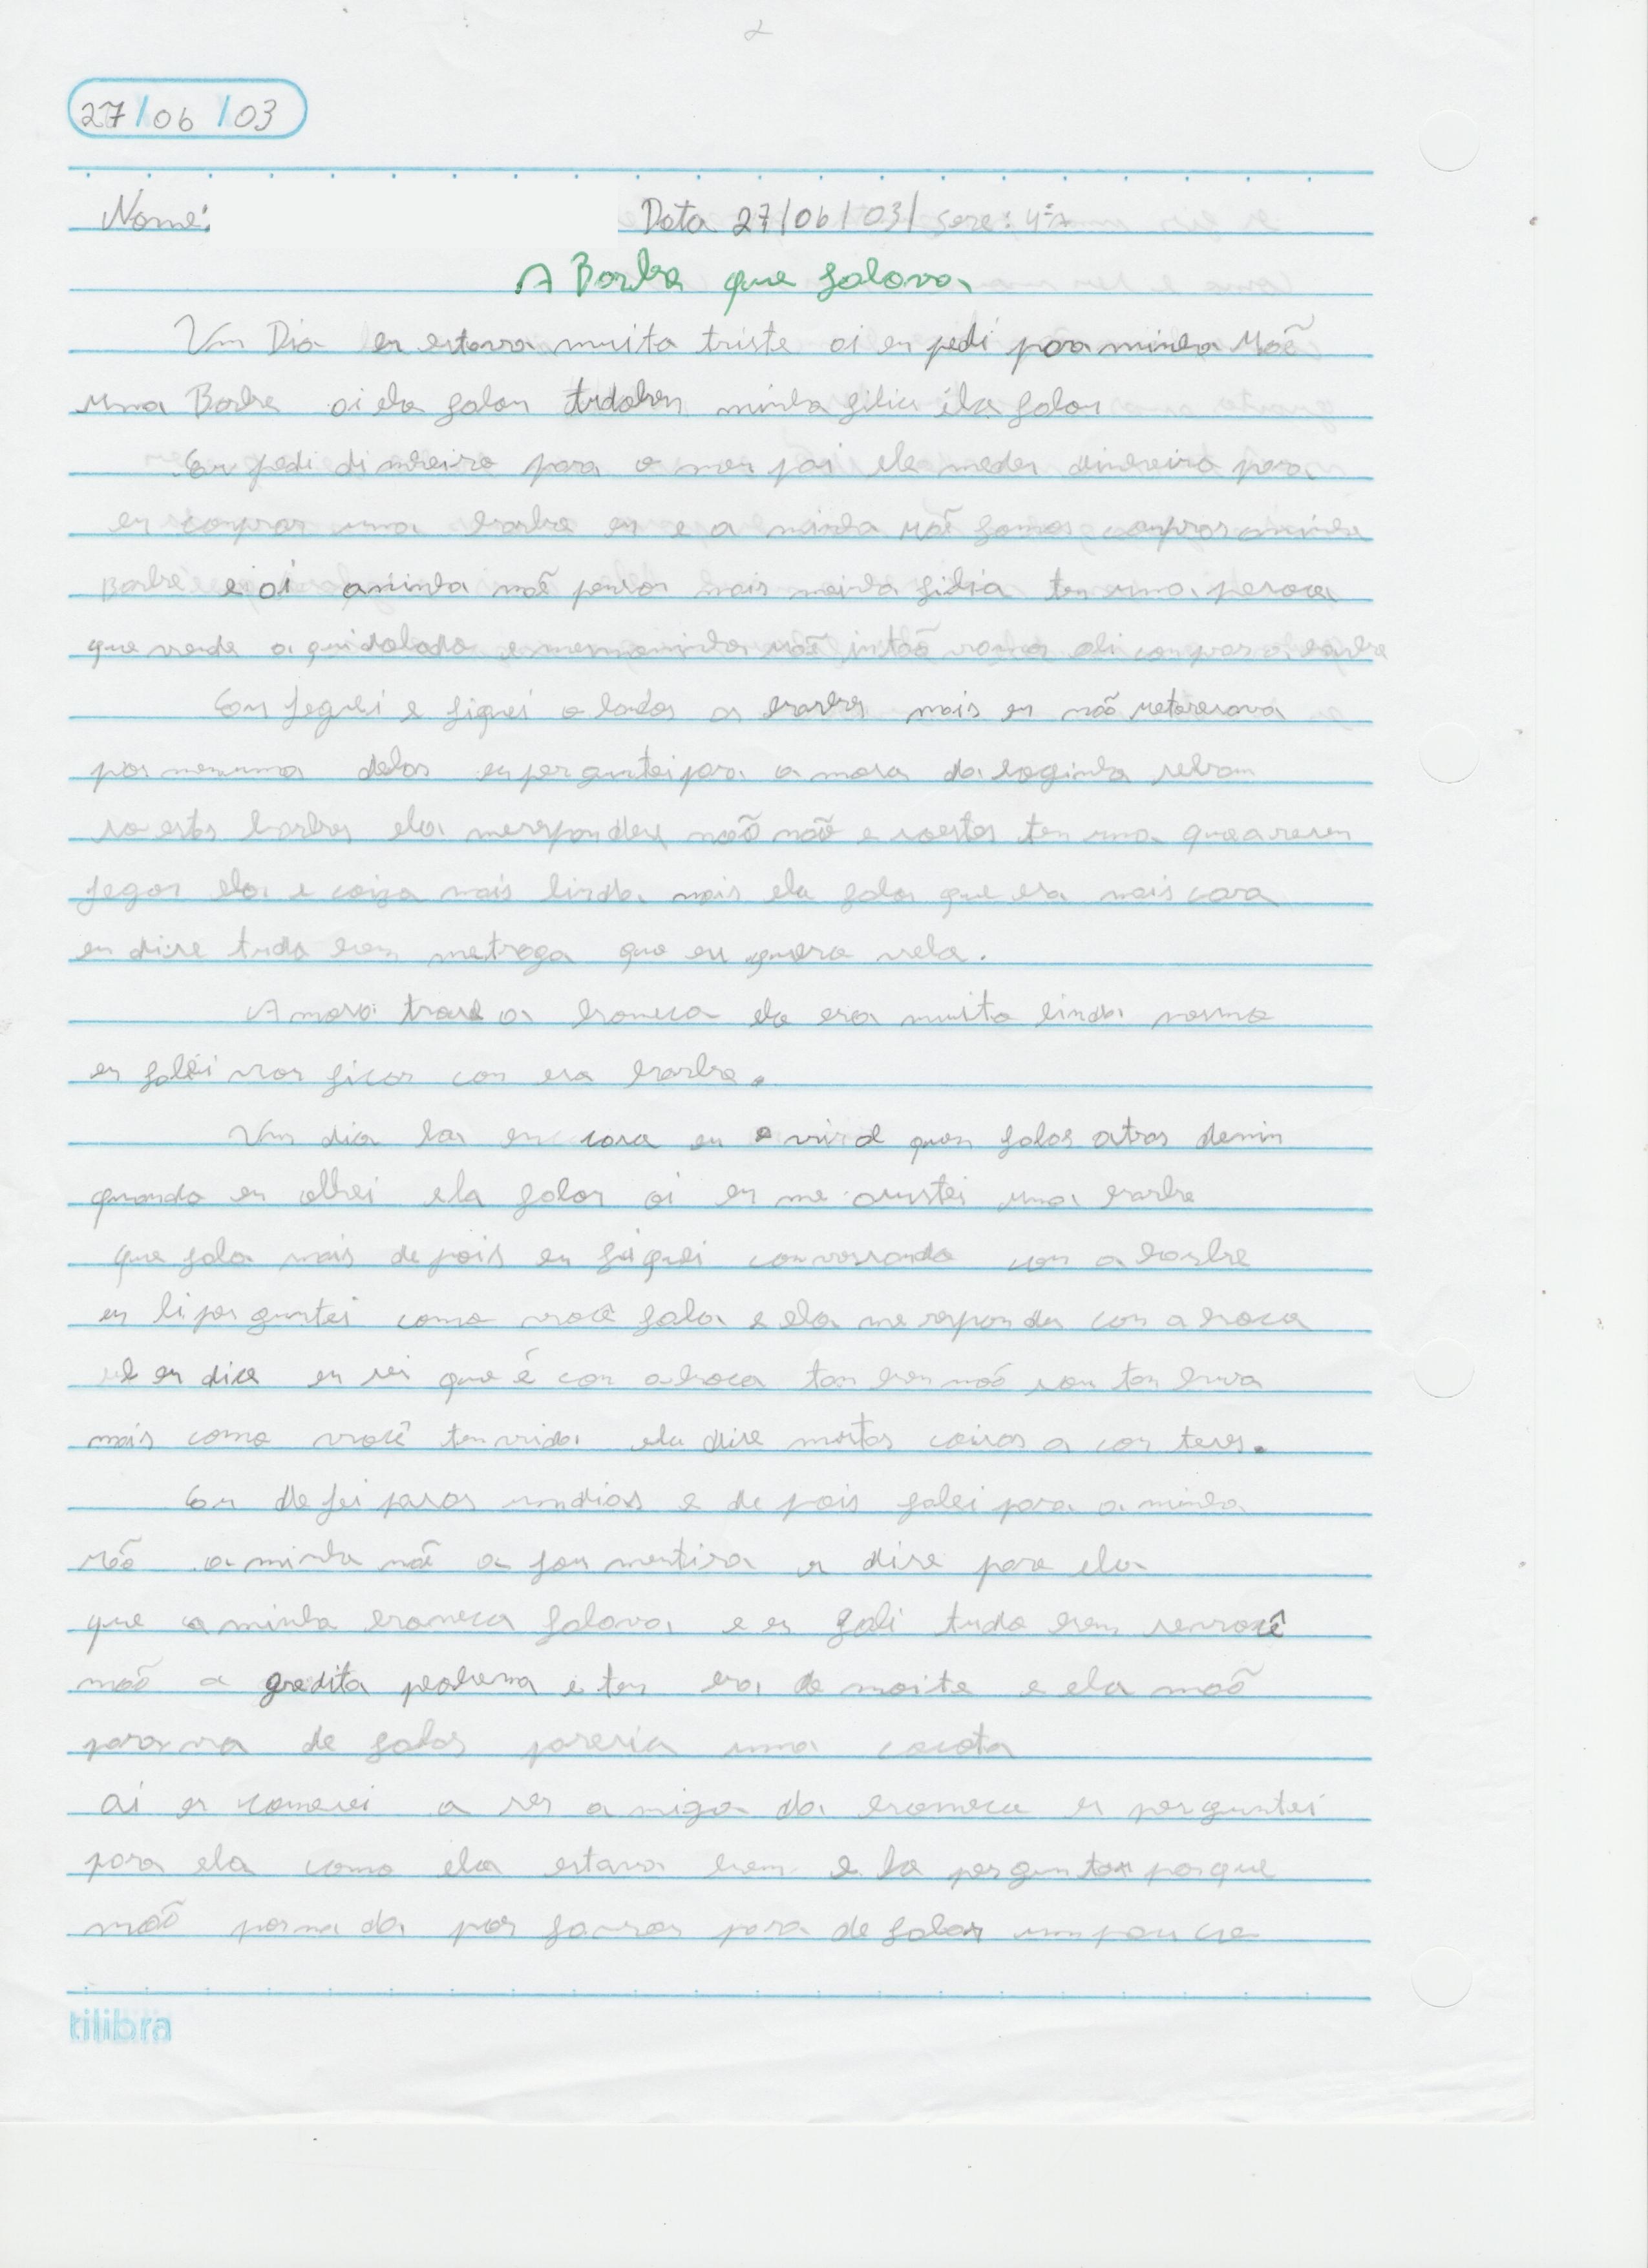 2
27/06/03
Nome: Data 27/06/03/ sere: 4ªA
A Barbe que falava
Um Dia eu estava muita triste ai eu pedi para minha Mãe
uma Barbe ai ela falou tudobem minha filia ela falou
Eu pedi dinheiro para o meu pai ele medeu dinheiro para
eu comprar uma barbe eu e a minha mãe fomos comprar aminha
Barbe e ai aminha mãe pensou mais minha filia ten uma pesoa
que vende a quidolado e mesmo minha mãe intão vamos ali comprar a barbe
Eu jegei e fiquei olhando as barbes mais eu não
por nenuma delas eu perguntei para a mosa da loginha
so estas barbes ela merespondeu não não e soestas ten uma que
jegou ela e coiza mais linda mais ela falou que era mais cara
eu dise tudo bem metraga que eu quero vela.
A mosa trouse a boneca ela era muito linda mesmo
eu falei vou ficar con esa barbe.
Um dia la en casa eu ovird quen falou atras demin
quando eu olhei ela falou oi eu me asustei uma barbe
que fala mais de pois eu fiquei conversando con a barbe
eu li perguntei como você fala e ela me respondeu con a boca
eu dice eu sei que é con aboca tan ben não sou tan bura
mais como você ten vida ela dise muitas coisas a con teseu.
Eu dejei pasar undias e de pois falei para a minha
mãe a minha mãe a jou mentira eu dise para ela
que a minha boneca falava e eu fali tudo bem sevocê
não a gredita poblema e teu era de noite e ela não
parava de falar paresia uma cocota
ai eu comesei a ser amiga da boneca eu perguntei
para ela como ela estava bem e la perguntou porque
não por nada por favor para de falar umpouco
tilibra